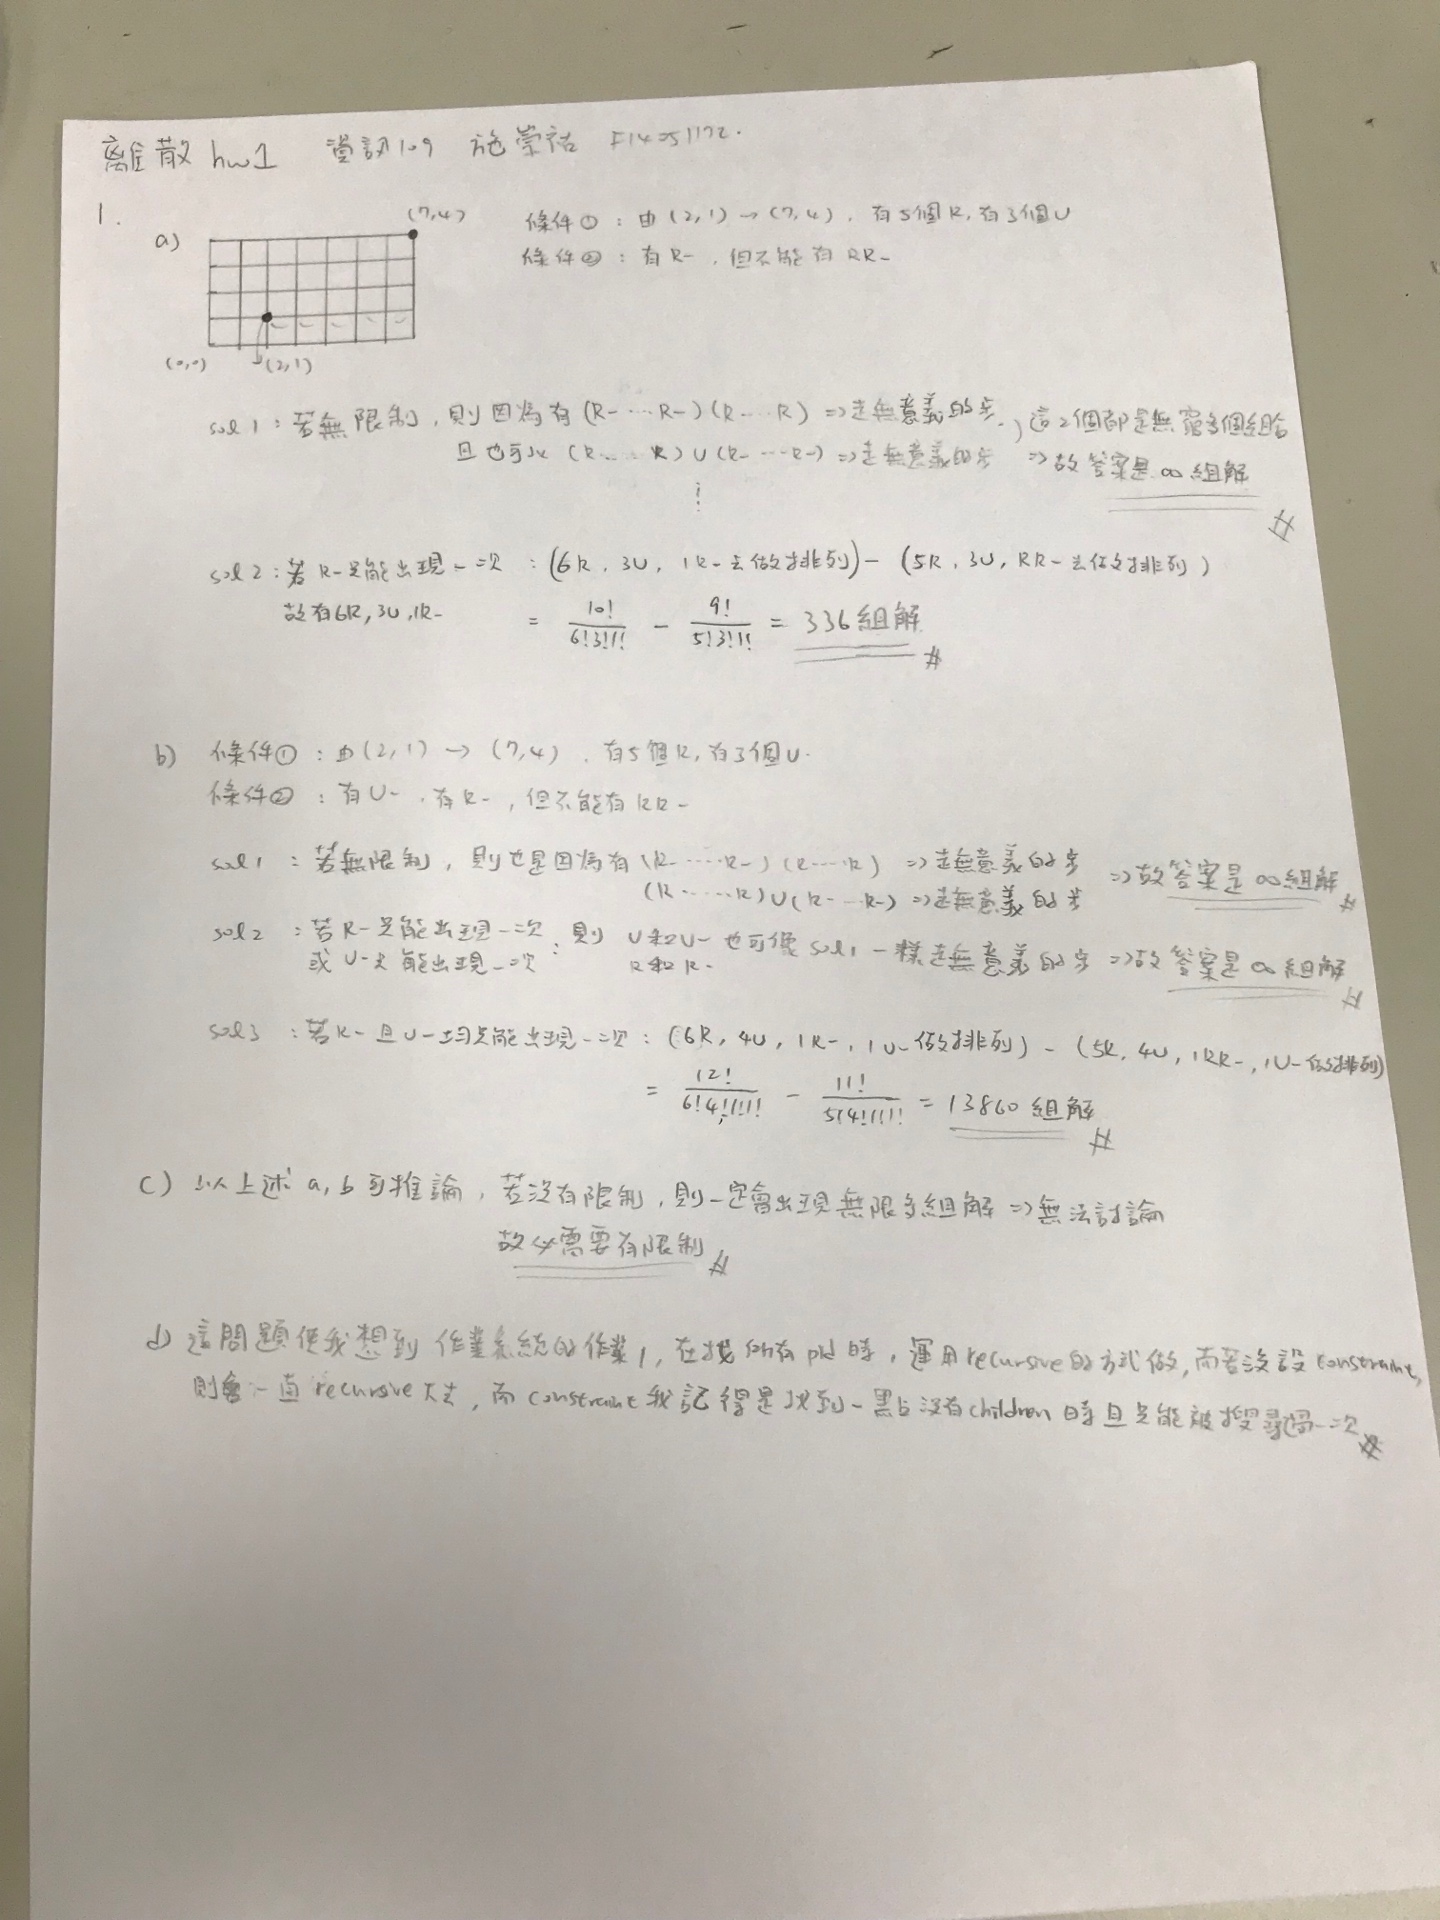 離散 hw1 資訊109 施崇祐 F14051172.
1.
a) (7,4)
(0,0) (2,1)
條件① : 由 (2,1) → (7,4) , 有5個R, 有3個U
條件② : 有 R- , 但不能有 RR-
sol 1 : 若無限制 , 則因為有 (R- ... R-) (R ... R) => 走無意義的步 , 這2個都是無窮多個組合
且也可以 (R ... R) U (R- ... R-) => 走無意義的步 => 故答案是 ∞ 組解 #
⋮
sol 2 : 若 R- 只能出現一次 : (6R , 3U , 1R- 去做排列) - (5R , 3U , RR- 去做排列)
故有 6R, 3U, 1R- = 10!/6!3!1! - 9!/5!3!1! = 336 組解 #
b) 條件① : 由 (2,1) → (7,4) , 有5個R, 有3個U.
條件② : 有 U- , 有 R- , 但不能有 RR-
sol 1 : 若無限制 , 則也是因為有 (R- ..... R-) (R ..... R) => 走無意義的步 => 故答案是 ∞ 組解 #
(R ..... R) U (R- ... R-) => 走無意義的步
sol 2 : 若 R- 只能出現一次 : 則 U 和 U- 也可像 sol 1 一樣走無意義的步 => 故答案是 ∞ 組解 #
或 U- 只能出現一次 R 和 R-
sol 3 : 若 R- 且 U- 均只能出現一次 : (6R, 4U, 1R-, 1U- 做排列) - (5R, 4U, 1RR-, 1U- 做排列)
= 12!/6!4!1!1! - 11!/5!4!1!1! = 13860 組解 #
c) 以上述 a, b 可推論 , 若沒有限制 , 則一定會出現無限多組解 => 無法討論
故必需要有限制 #
d) 這問題使我想到 作業系統的作業1, 在找所有 pid 時 , 運用 recursive 的方式做, 而若沒設 constraint,
則會一直 recursive 下去 , 而 constraint 我記得是找到一點沒有 children 時且只能被搜尋過一次 #